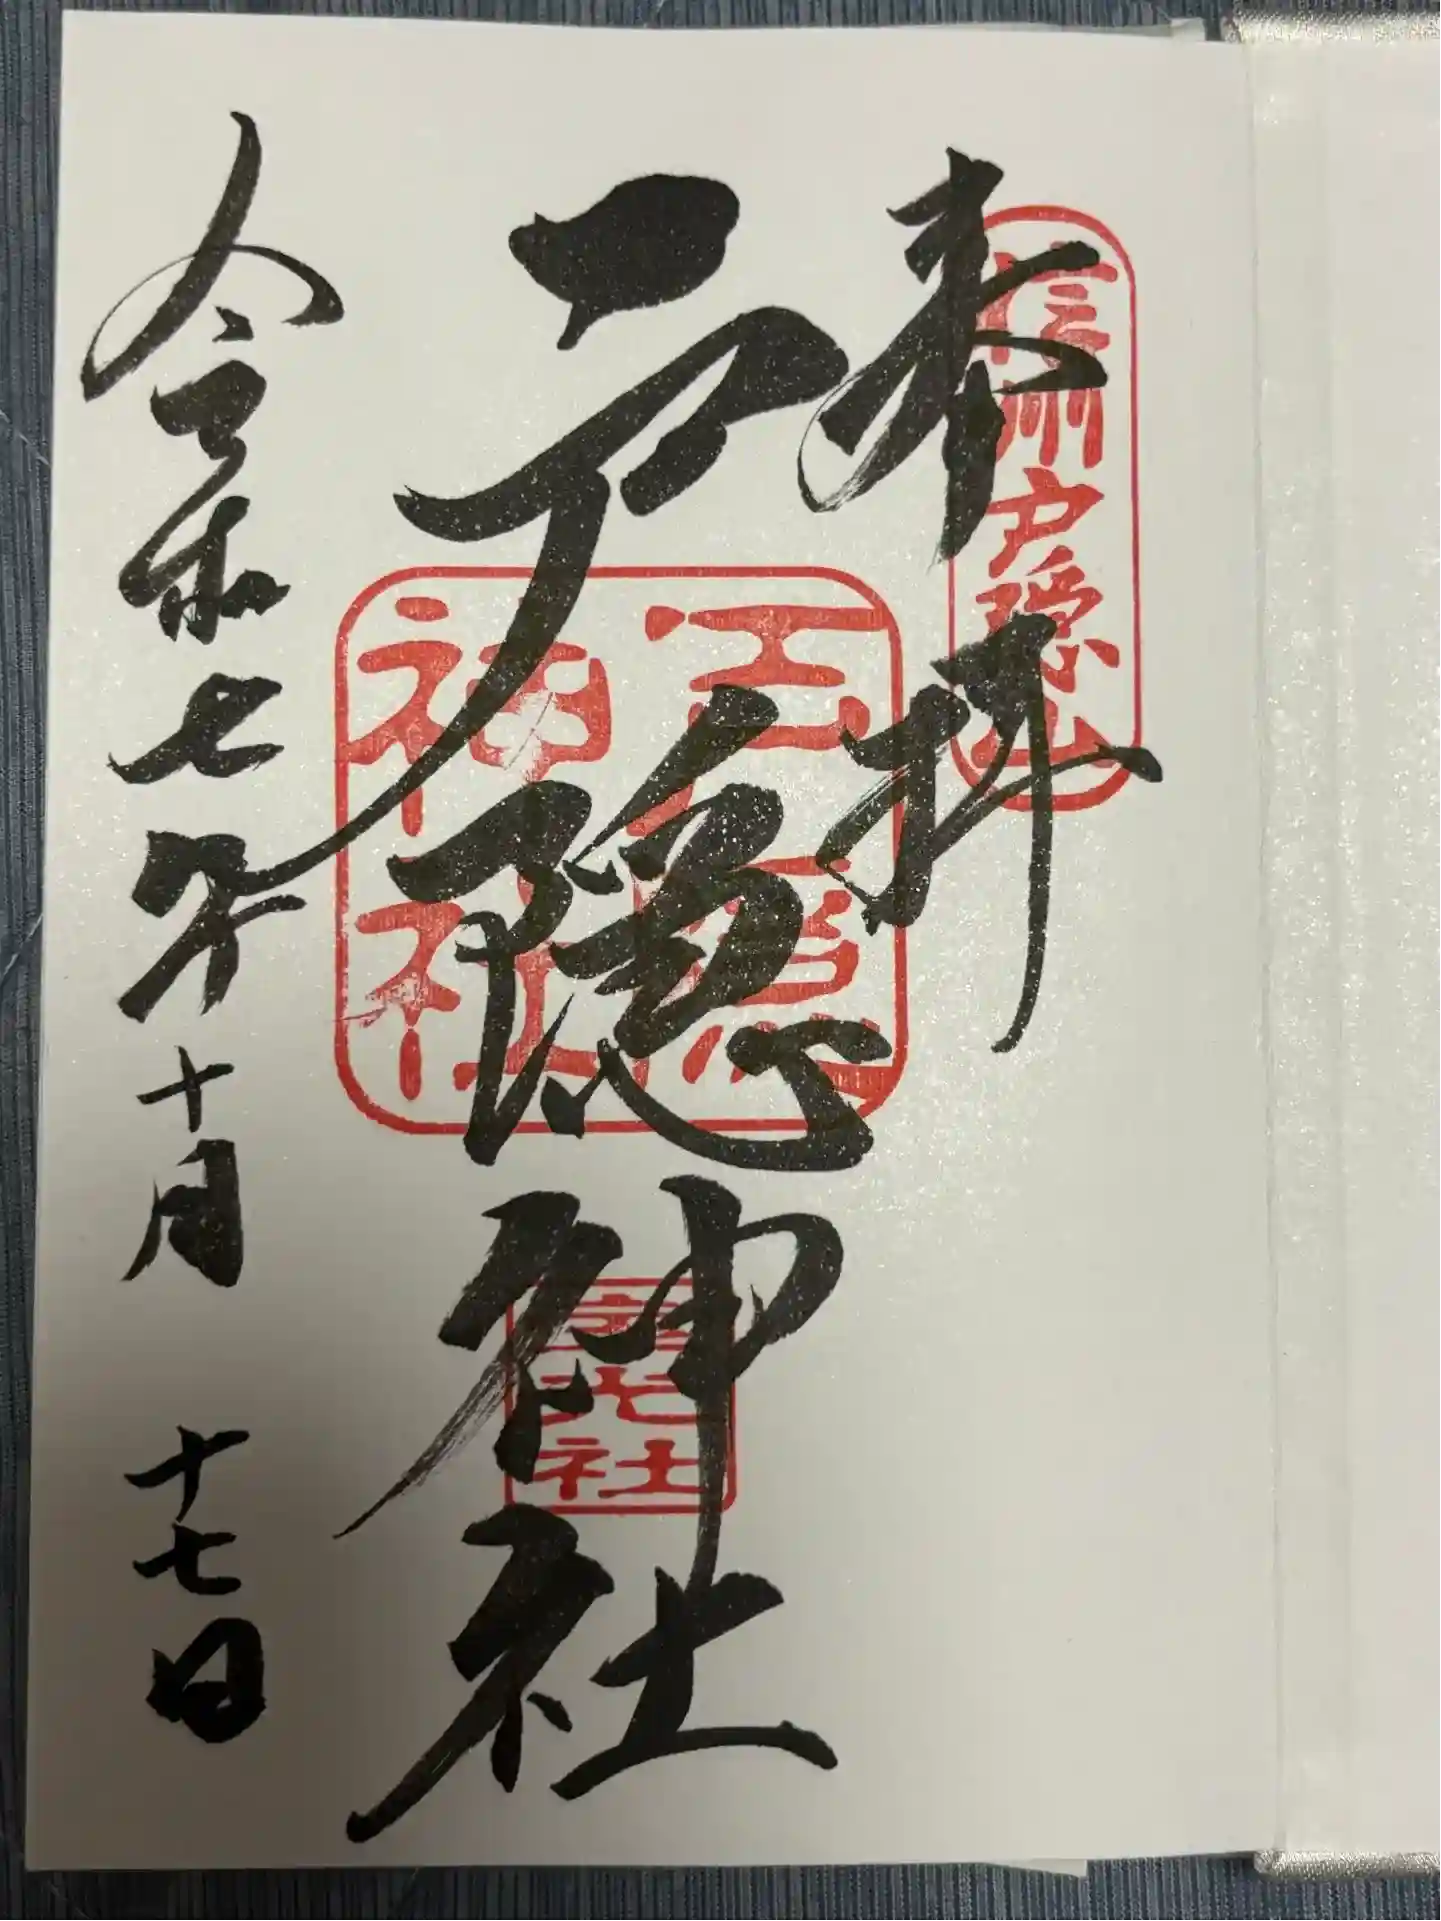 奉拝
信州戸隠山
戸隠神社
戸隠
神社
宝光社
令和七年十月十七日